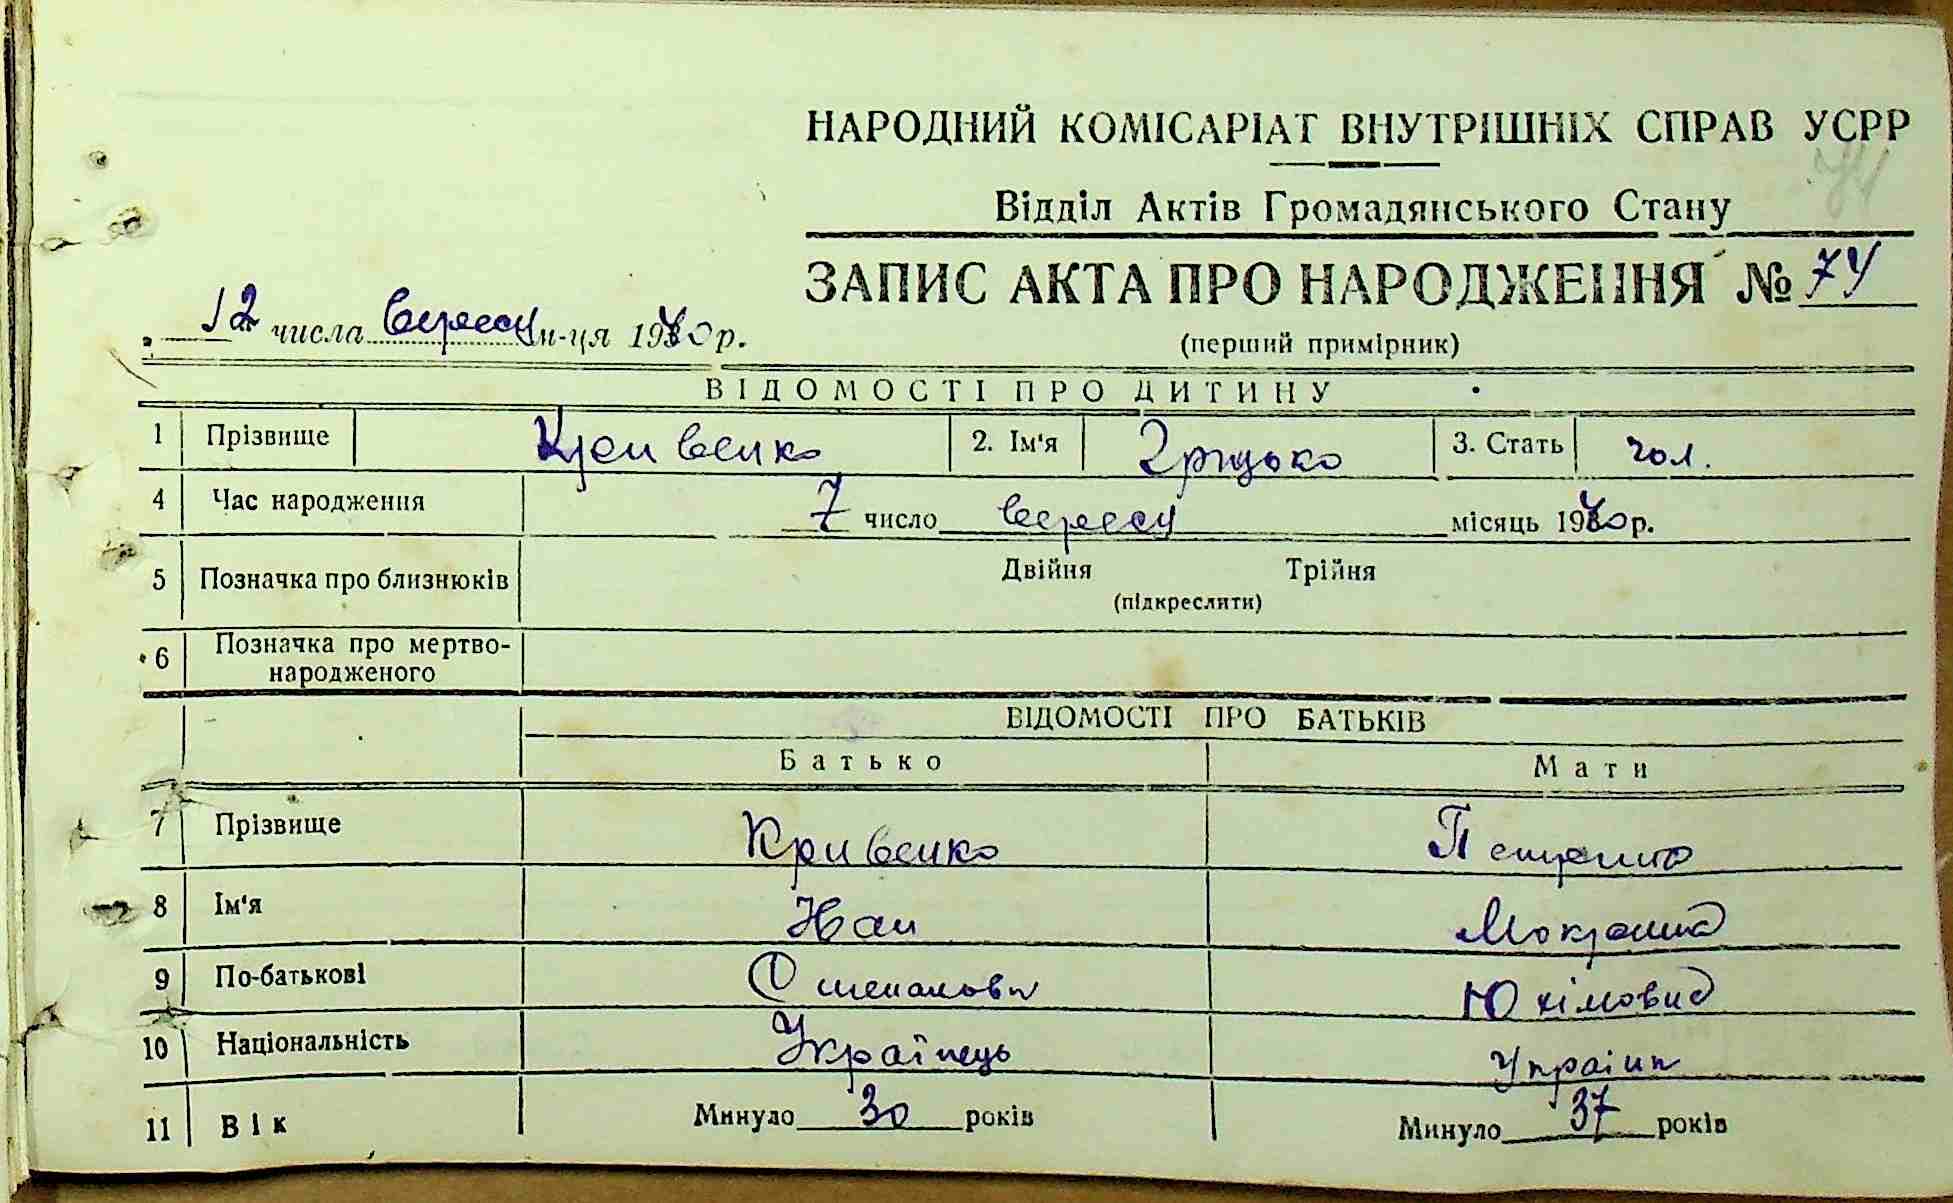 НАРОДНИЙ КОМІСАРІАТ ВНУТРІШНІХ СПРАВ УСРР
74
Відділ Актів Громадянського Стану
ЗАПИС АКТА ПРО НАРОДЖЕННЯ № 74
12 числа вересня м-ця 1940 р.
(перший примірник)
ВІДОМОСТІ ПРО ДИТИНУ
1 Прізвище Кривенко 2. Ім'я Грицько 3. Стать чол.
4 Час народження 7 число вересня місяць 1940 р.
5 Позначка про близнюків Двійня Трійня
(підкреслити)
6 Позначка про мертво-
народженого
ВІДОМОСТІ ПРО БАТЬКІВ
Батько Мати
7 Прізвище Кривенко
8 Ім'я Іван
9 По-батькові Степанови Юхімовна
10 Національність Українець Україн
11 Вік Минуло 30 років Минуло 37 років